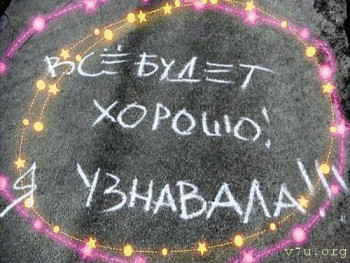 ВСЁ БУДЕТ
ХОРОШО!
Я УЗНАВАЛА!!!
v7u.org